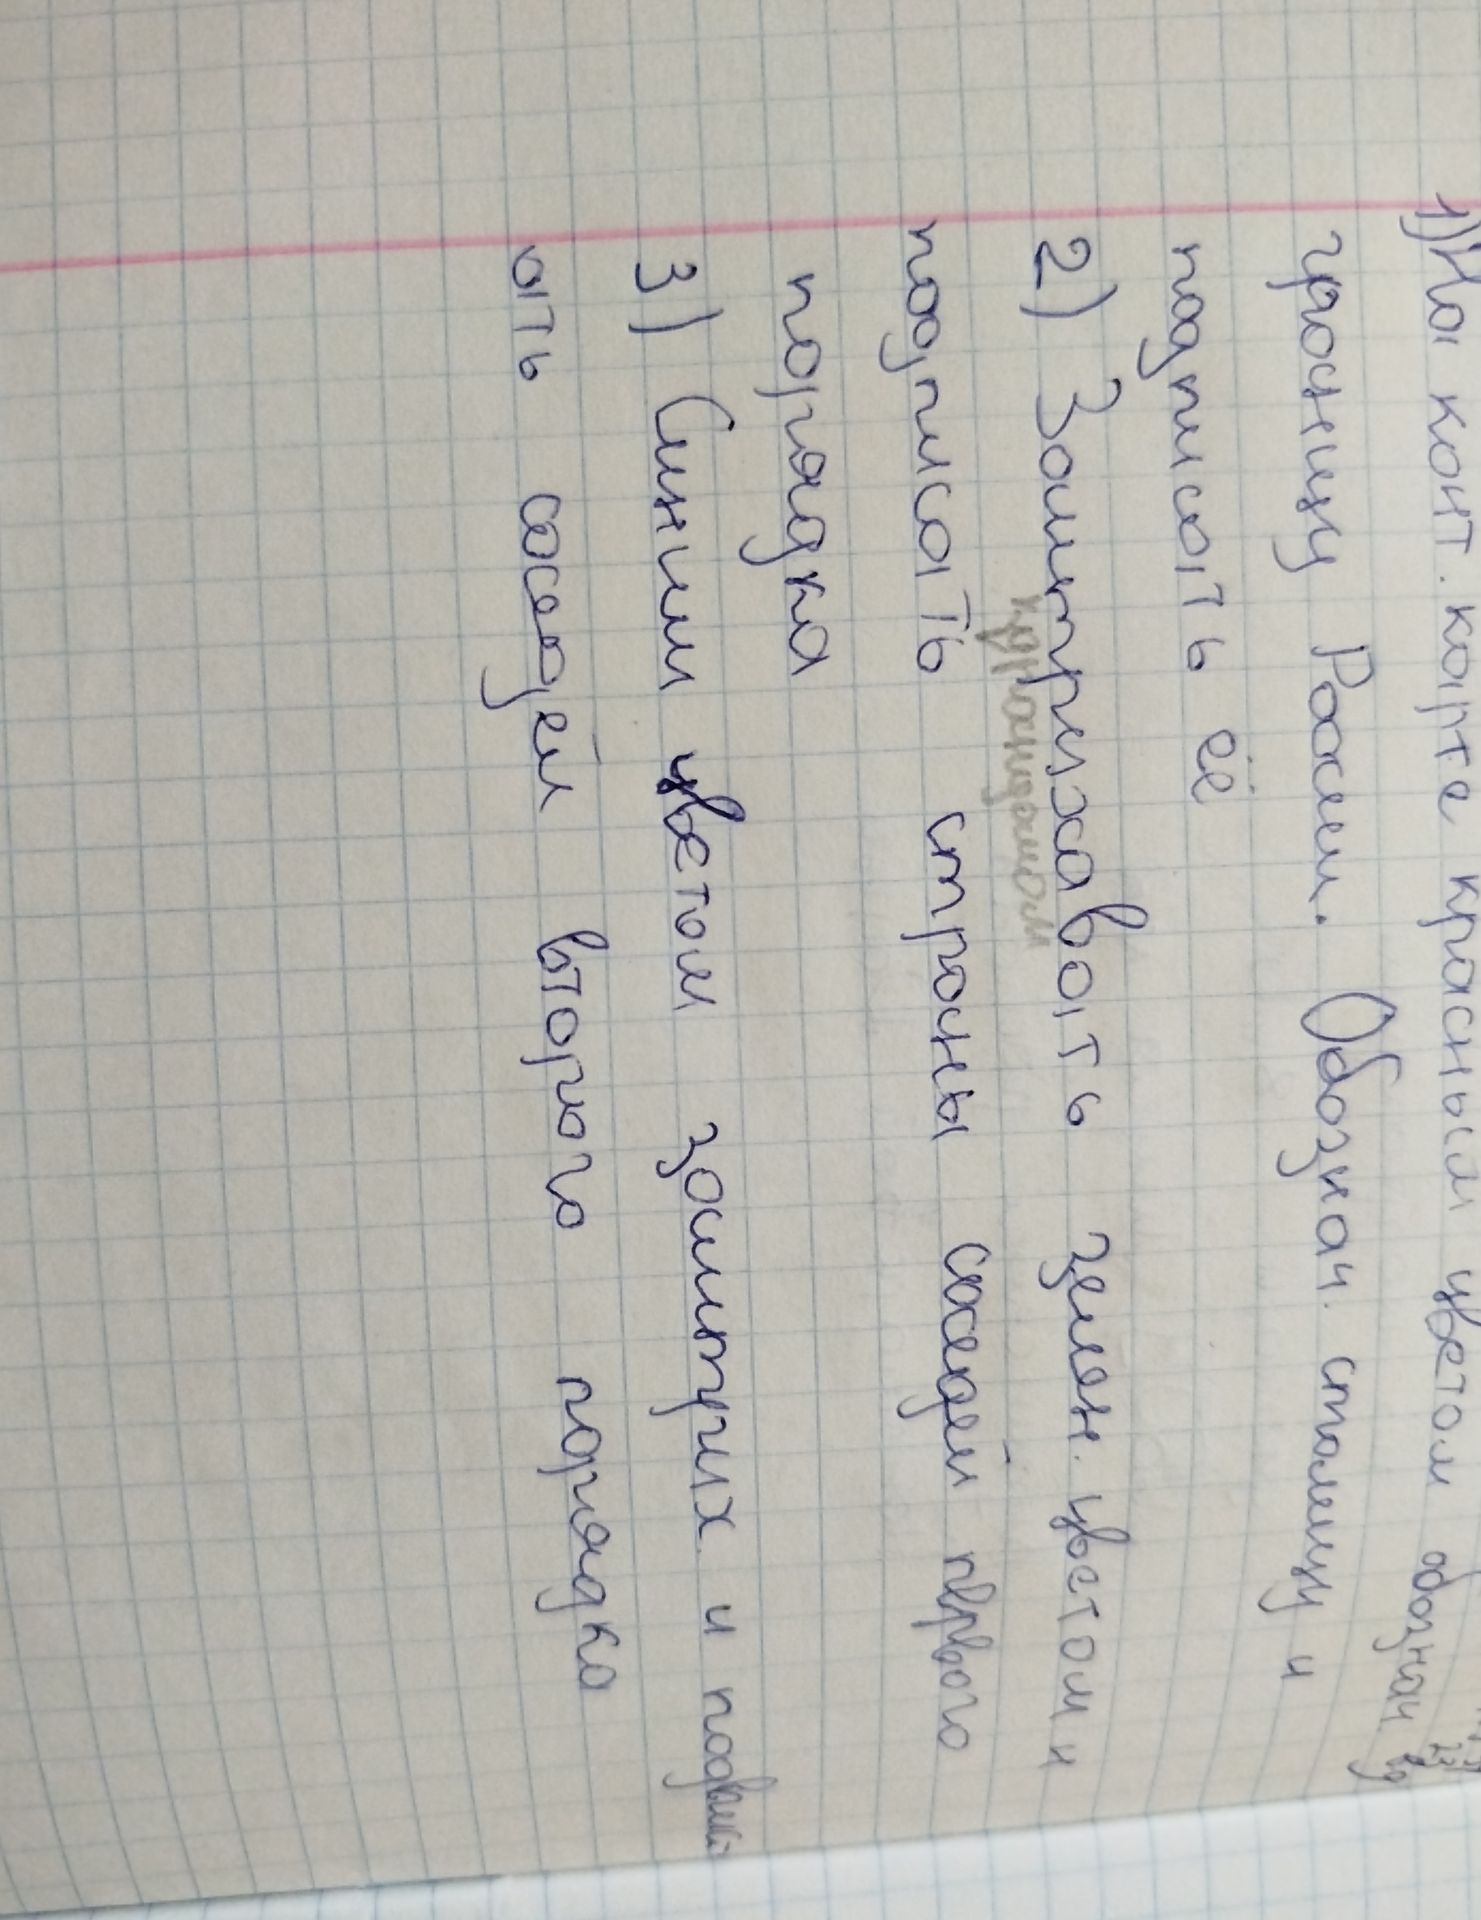 1) На конт. карте красным цветом обознач.
границу России. Обознач. столицу и
подписать её
2) Заштриховать зелен. цветом и
карандашом
подписать страны соседей первого
порядка
3) Синим цветом заштрих. и подпис
ать соседей второго порядка